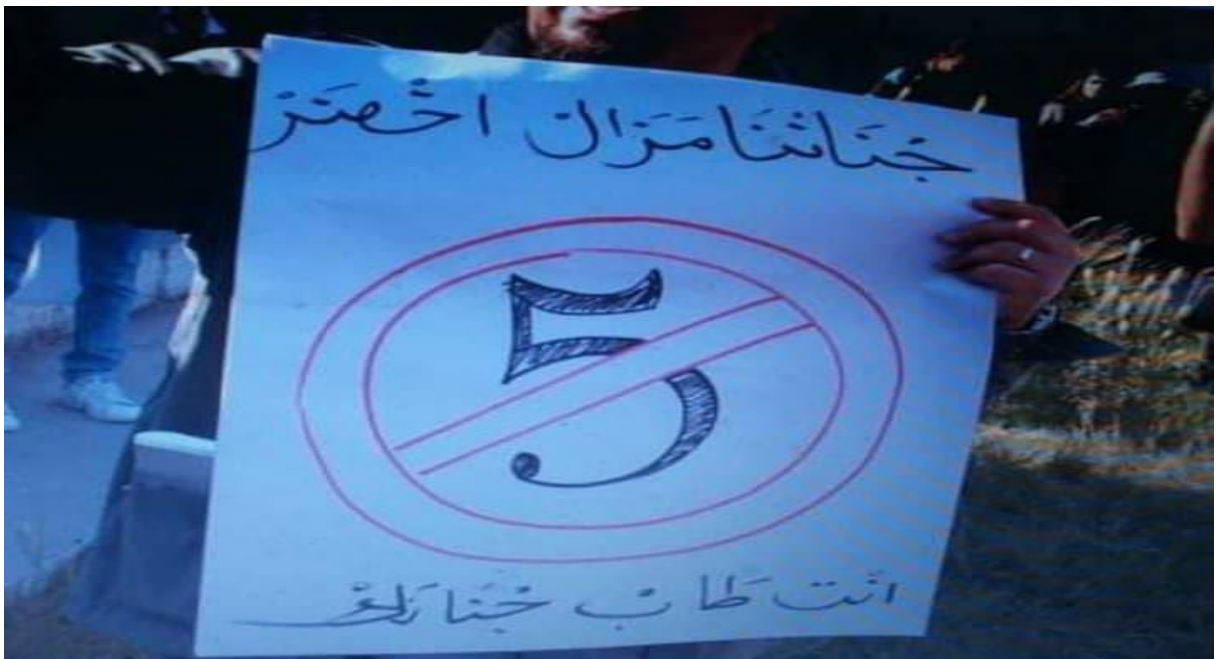 جُنَاتْنَا مَزَال اخْضَرْ
5
أنت طَابْ جْنَانَكْ